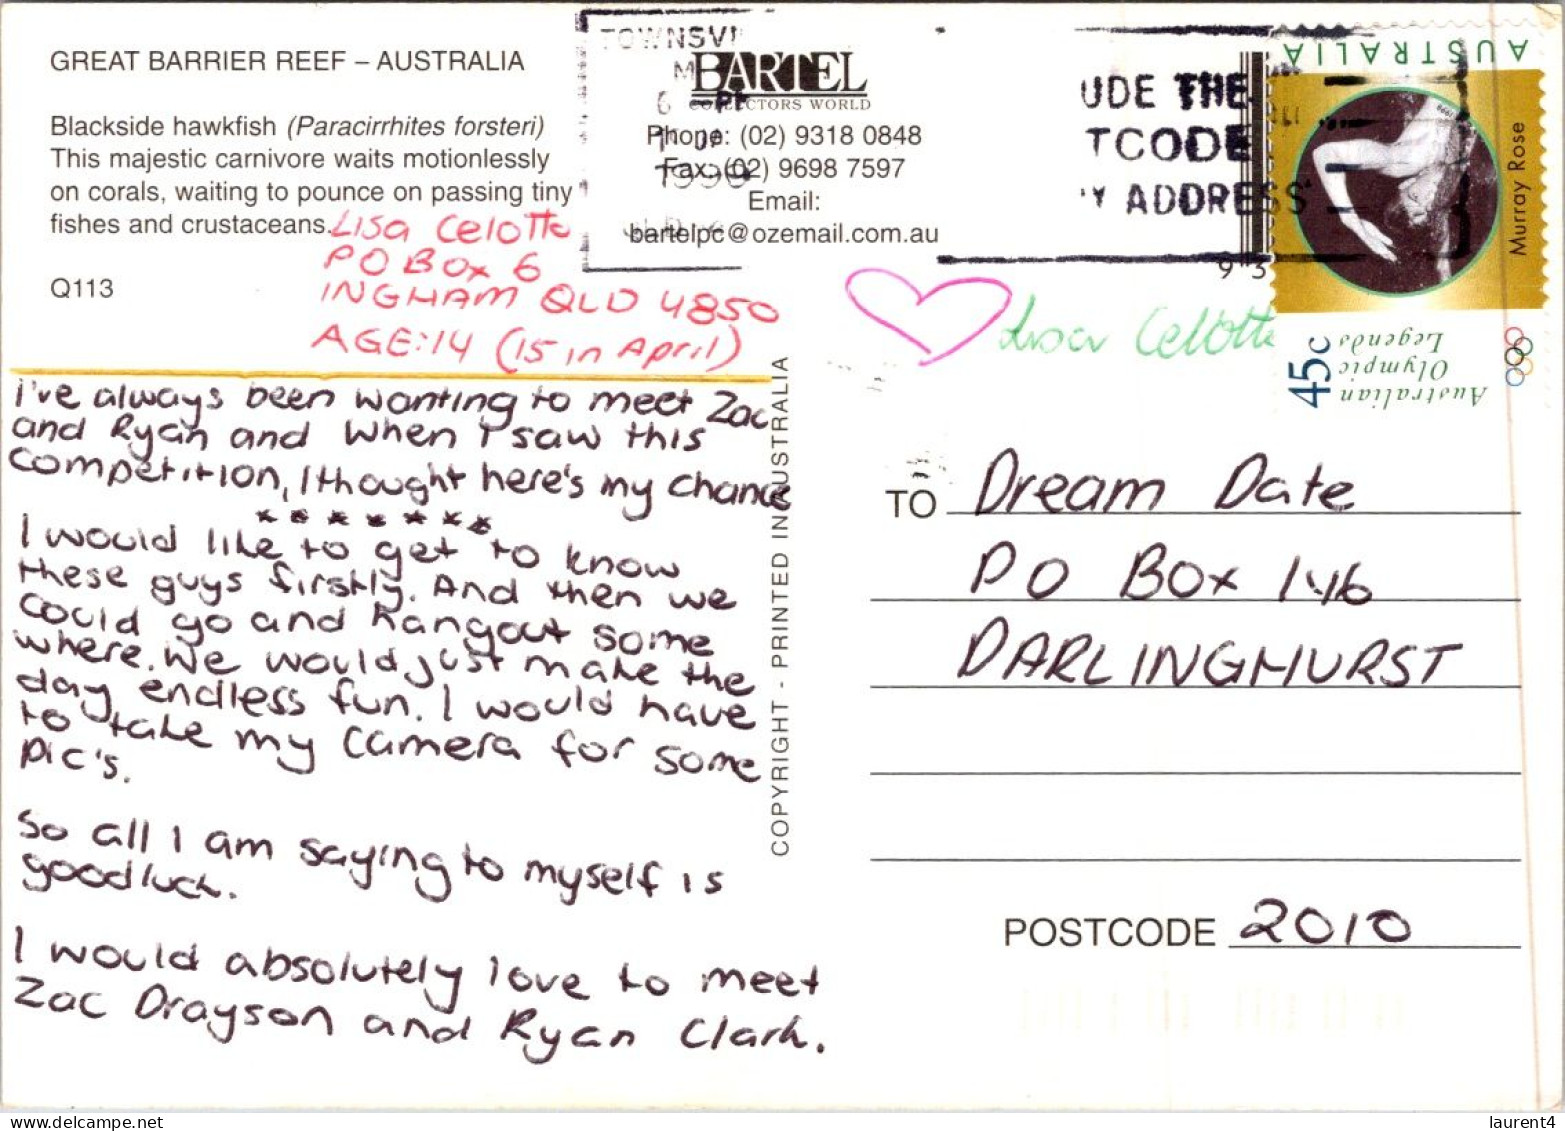 GREAT BARRIER REEF – AUSTRALIA
Blackside hawkfish (Paracirrhites forsteri)
This majestic carnivore waits motionlessly
on corals, waiting to pounce on passing tiny
fishes and crustaceans.
Q113
Lisa Celotto
PO Box 6
INGHAM QLD 4850
AGE:14 (15 in April)
I've always been wanting to meet Zac
and Ryan and when I saw this
competition, I thought here's my chance
* * * * * * *
I would like to get to know
these guys firstly. And then we
could go and hangout some
where. We would just make the
day endless fun. I would have
to take my camera for some
pic's.
So all I am saying to myself is
goodluck.
I would absolutely love to meet
Zac Drayson and Ryan Clark.
COPYRIGHT - PRINTED IN AUSTRALIA
BARTEL
COLLECTORS WORLD
Phone: (02) 9318 0848
Fax: (02) 9698 7597
Email:
bartelpc@ozemail.com.au
TOWNSVI
UDE THE
TCODE
Y ADDRESS
AUSTRALIA
Murray Rose
45c
Australian
Olympic
Legends
Lisa Celotto
TO Dream Date
PO Box 146
DARLINGHURST
POSTCODE 2010
laurent4